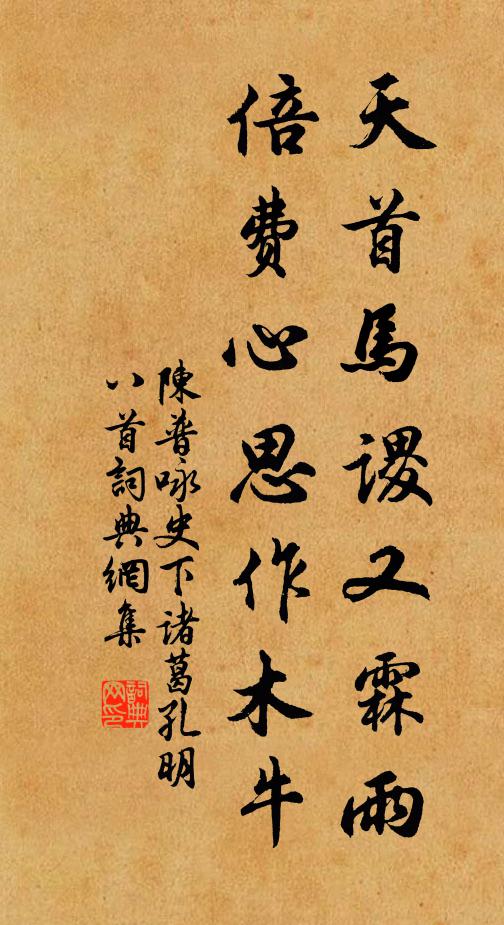 天首馬謖又霖雨
倍費心思作木牛
陳普咏史下諸葛孔明
八首詞典網集
詞典网印